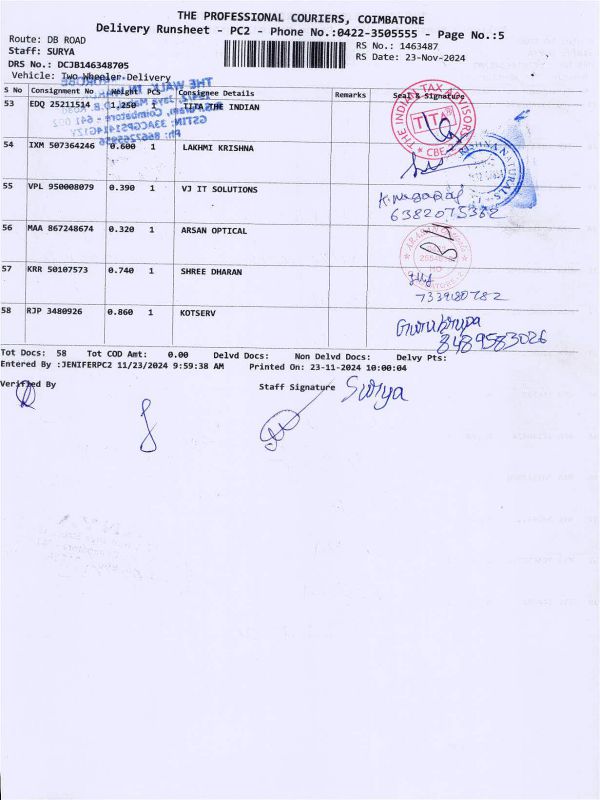 THE PROFESSIONAL COURIERS, COIMBATORE
Delivery Runsheet - PC2 - Phone No.:0422-3505555 - Page No.:5
Route: DB ROAD
Staff: SURYA
RS No.: 1463487
RS Date: 23-Nov-2024
DRS No.: DCJB146348705
Vehicle: Two Wheeler-Delivery
S No Consignment No Weight PCS Consignee Details Remarks Seal & Signature
53 EDQ 25211514 1.250 1 TITA THE INDIAN
THE INDIAN TAX ADVISORS TITA CBE
54 IXM 507364246 0.600 1 LAKHMI KRISHNA
55 VPL 950008079 0.390 1 VJ IT SOLUTIONS
6382075362
56 MAA 867248674 0.320 1 ARSAN OPTICAL
57 KRR 50107573 0.740 1 SHREE DHARAN
7339180782
58 RJP 3480926 0.860 1 KOTSERV
Gurukrupa
8489583026
Tot Docs: 58 Tot COD Amt: 0.00 Delvd Docs: Non Delvd Docs: Delvy Pts:
Entered By :JENIFERPC2 11/23/2024 9:59:38 AM Printed On: 23-11-2024 10:00:04
Verified By Staff Signature Surya